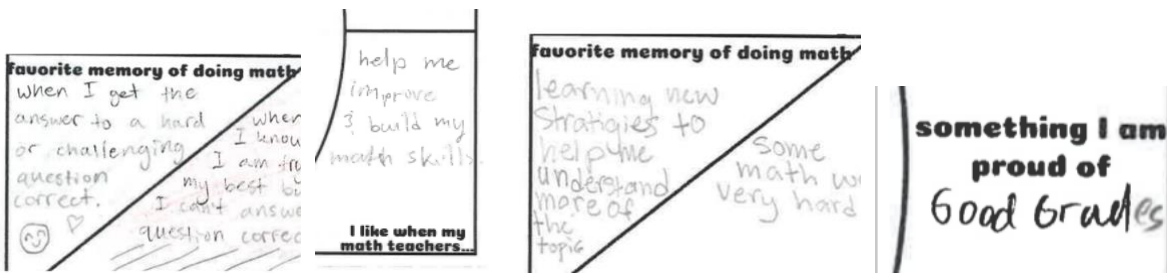 favorite memory of doing math
when I get the
answer to a hard
or challenging
question
correct.
when
I know
I am
my best
I can't
question
help me
improve
& build my
math skills.
I like when my
math teachers...
favorite memory of doing math
learning new
Stratigies to
help me
understand
more of
the
topic
some
math
very hard
something I am
proud of
Good Grades